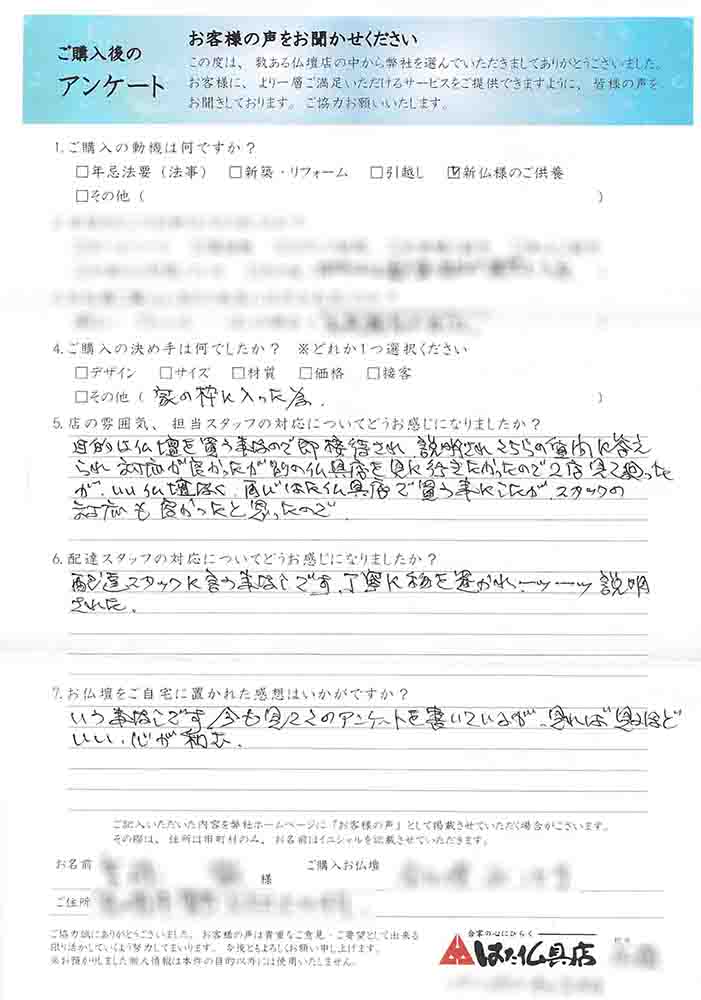 ご購入後の
アンケート
お客様の声をお聞かせください
この度は、数ある仏壇店の中から弊社を選んでいただきましてありがとうございました。
お客様に、より一層ご満足いただけるサービスをご提供できますように、皆様の声を
お聞きしております。ご協力お願いいたします。
1.ご購入の動機は何ですか？
□年忌法要（法事） □新築・リフォーム □引越し ☑新仏様のご供養
□その他（ ）
4.ご購入の決め手は何でしたか？ ※どれか1つ選択ください
□デザイン □サイズ □材質 □価格 □接客
□その他（ 家の枠に入った為. ）
5.店の雰囲気、担当スタッフの対応についてどうお感じになりましたか？
目的は仏壇を買う事なので即接待され、説明されこちらの質問に答え
られ 対応が良かったが別の仏具店を見に行きたかったので2店見て廻った
が、いい仏壇なく、再びはた仏具店で買う事にしたが、スタッフの
対応も良かったと思ったので
6.配達スタッフの対応についてどうお感じになりましたか？
配達スタッフに言う事なしです、丁寧に物を運かれ、一ツ一ツ説明
された.
7.お仏壇をご自宅に置かれた感想はいかがですか？
いう事なしです 今も見てこのアンケートを書いているが、見れば見るほど
いい、心が和む.
ご記入いただいた内容を弊社ホームページに「お客様の声」として掲載させていただく場合がございます。
その際は、住所は市町村のみ、お名前はイニシャルを記載させていただきます。
お名前 様 ご購入お仏壇
ご住所
ご協力誠にありがとうございました。お客様の声は貴重なご意見・ご要望として出来る
限り活かしていくよう努力してまいります。今後ともよろしくお願い申し上げます。
※お預かりしました個人情報は本件の目的以外には使用いたしません。
合掌の心にひらく
はた仏具店
担当